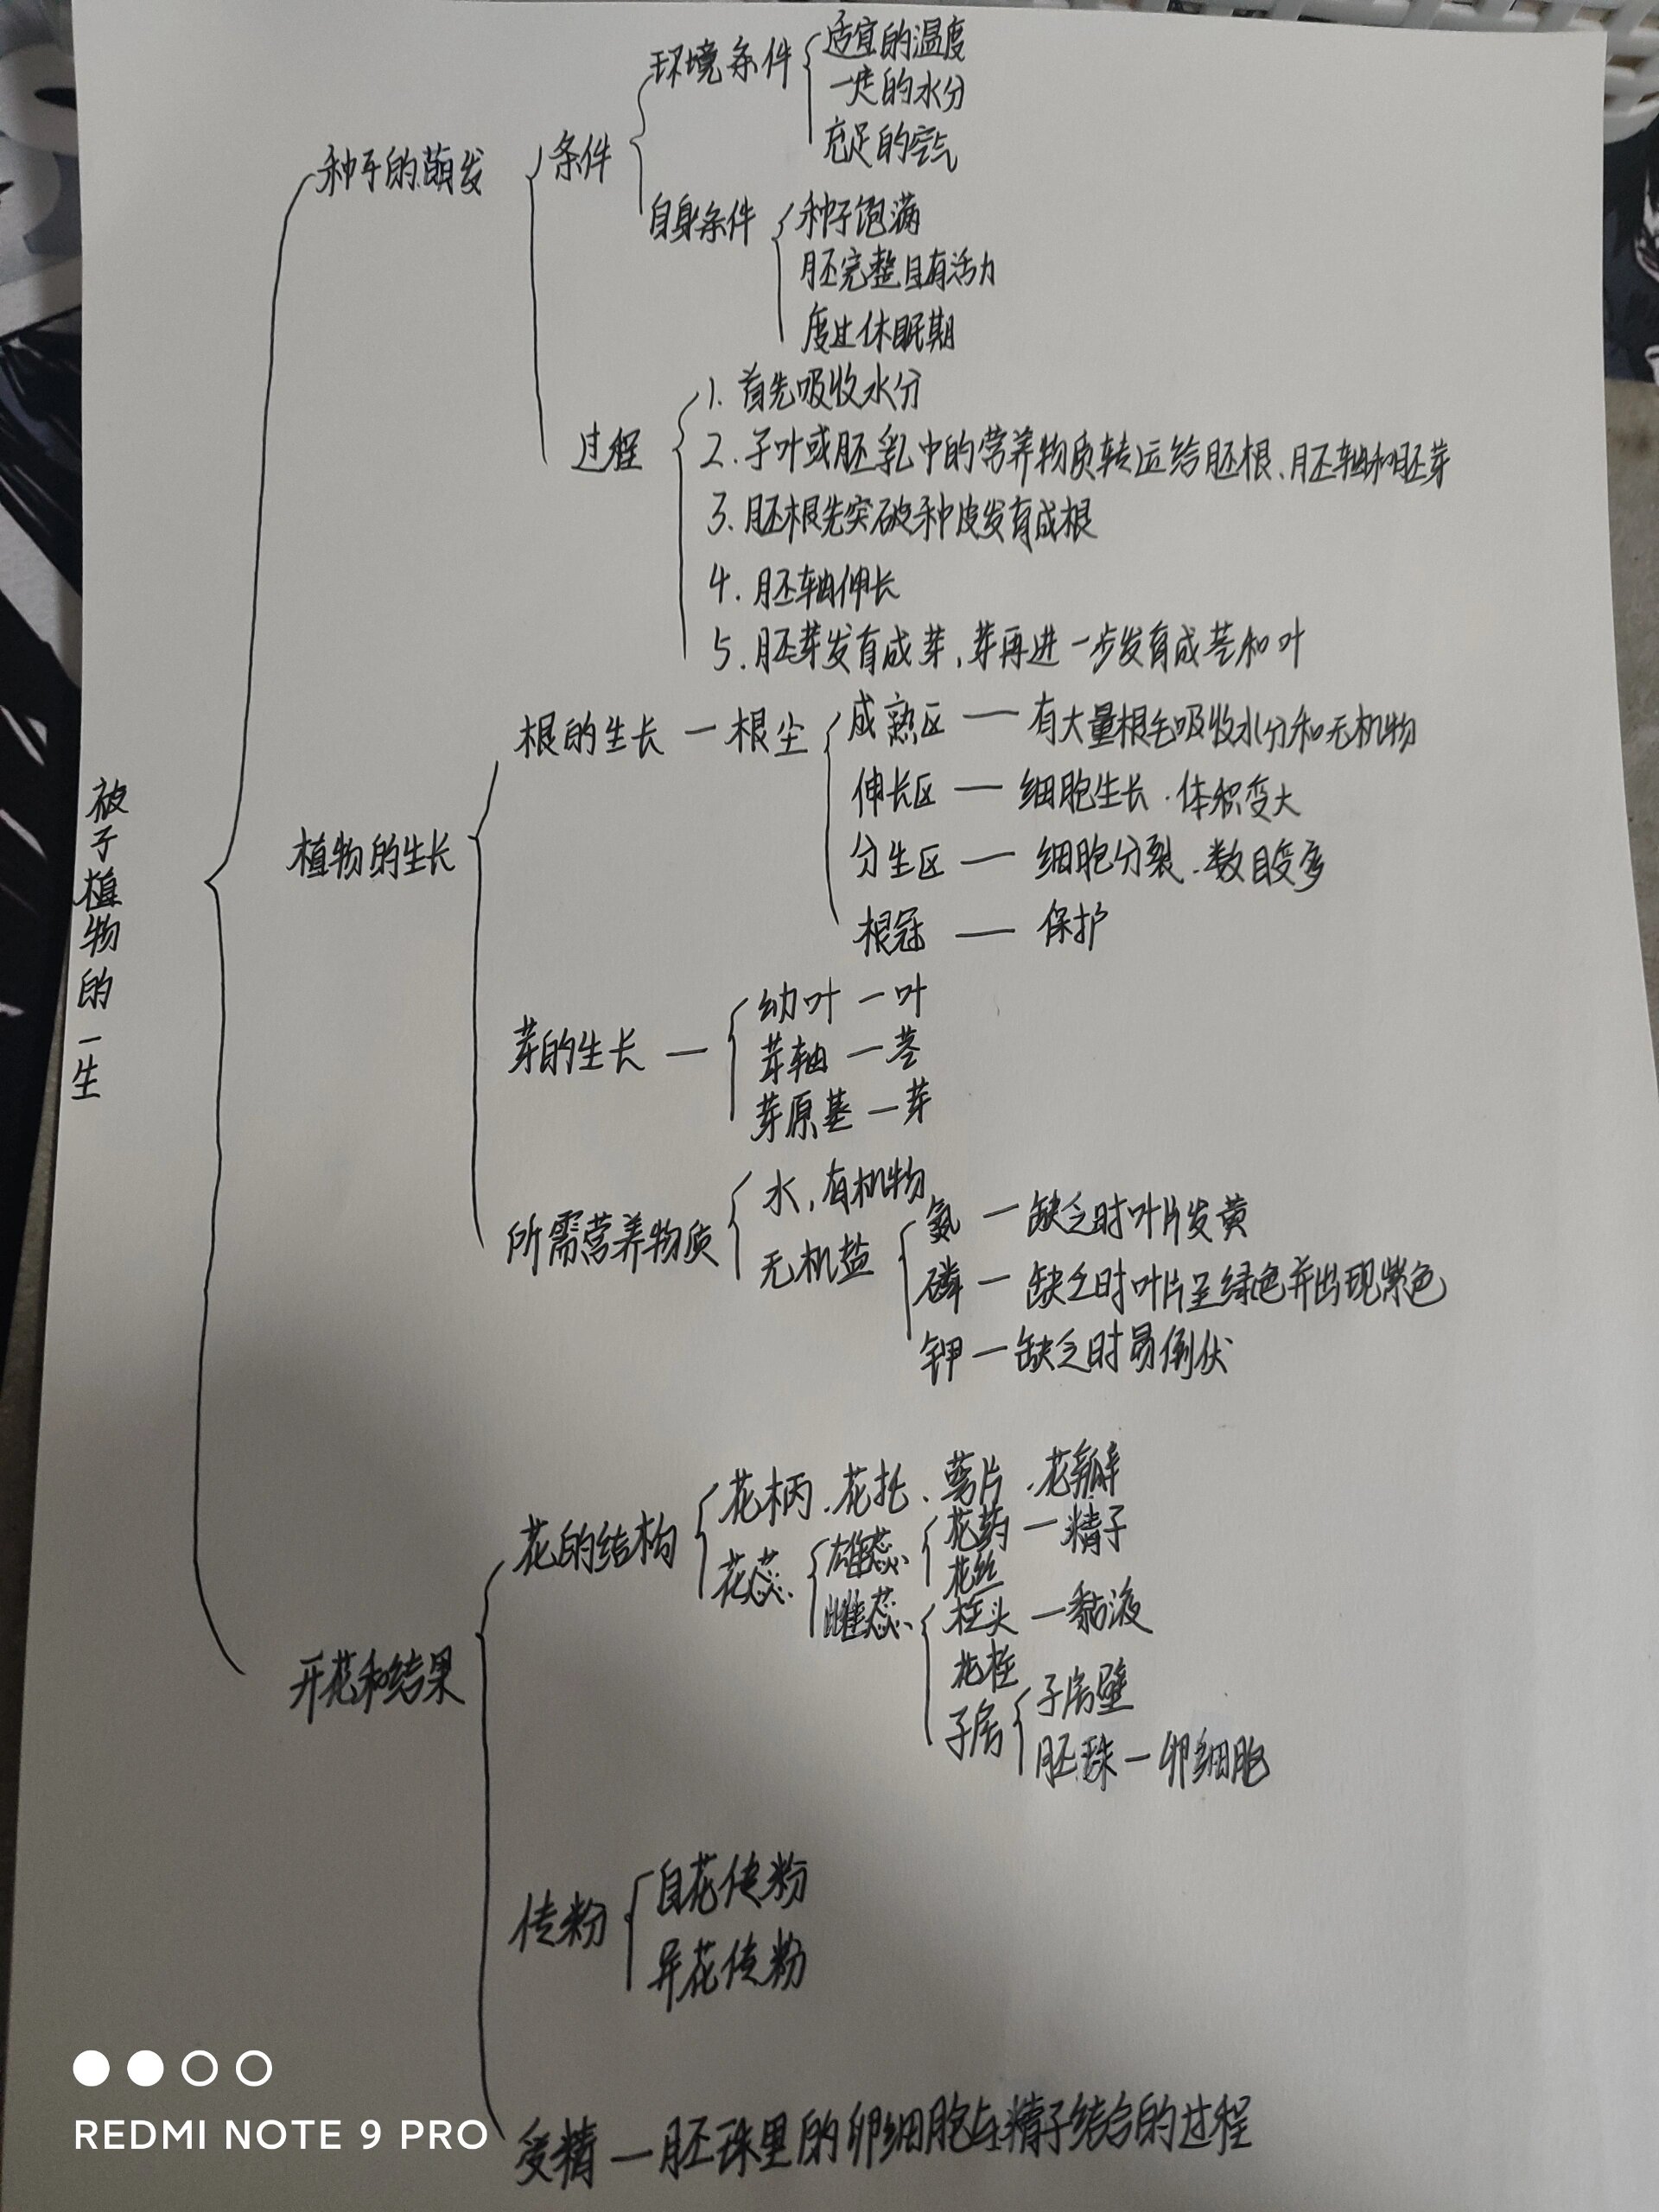 被子植物的一生
种子的萌发
条件
环境条件
适宜的温度
一定的水分
充足的空气
自身条件
种子饱满
胚完整且有活力
度过休眠期
过程
1. 首先吸收水分
2. 子叶或胚乳中的营养物质转运给胚根、胚轴和胚芽
3. 胚根先突破种皮发育成根
4. 胚轴伸长
5. 胚芽发育成芽,芽再进一步发育成茎和叶
植物的生长
根的生长 — 根尖
成熟区 — 有大量根毛吸收水分和无机物
伸长区 — 细胞生长.体积变大
分生区 — 细胞分裂.数目变多
根冠 — 保护
芽的生长 —
幼叶 — 叶
芽轴 — 茎
芽原基 — 芽
所需营养物质
水,有机物
无机盐
氮 — 缺乏时叶片发黄
磷 — 缺乏时叶片呈绿色并出现紫色
钾 — 缺乏时易倒伏
开花和结果
花的结构
花柄.花托、萼片.花瓣
花蕊
雄蕊
花药 — 精子
花丝
雌蕊
柱头 — 黏液
花柱
子房
子房壁
胚珠 — 卵细胞
传粉
自花传粉
异花传粉
受精 — 胚珠里的卵细胞与精子结合的过程
REDMI NOTE 9 PRO